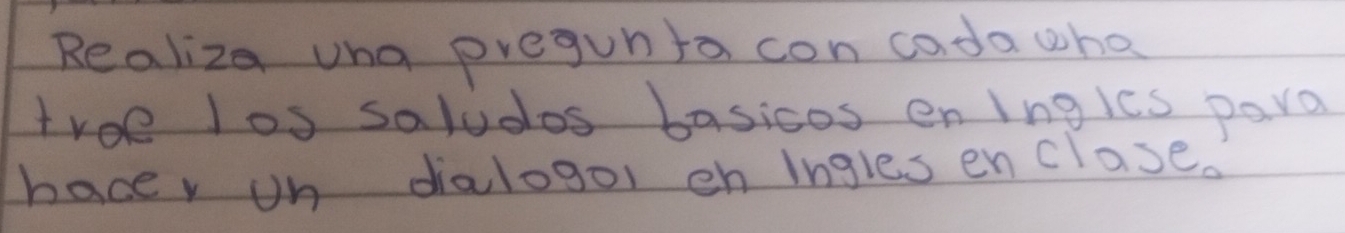 Realiza una pregunta con cada una
trae los saludos basicos en Ingles para
hacer un dialogo en Ingles en clase.